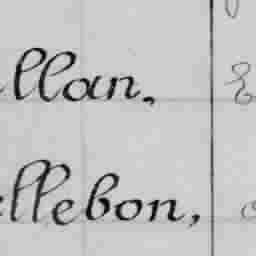 llan,
ellebon,